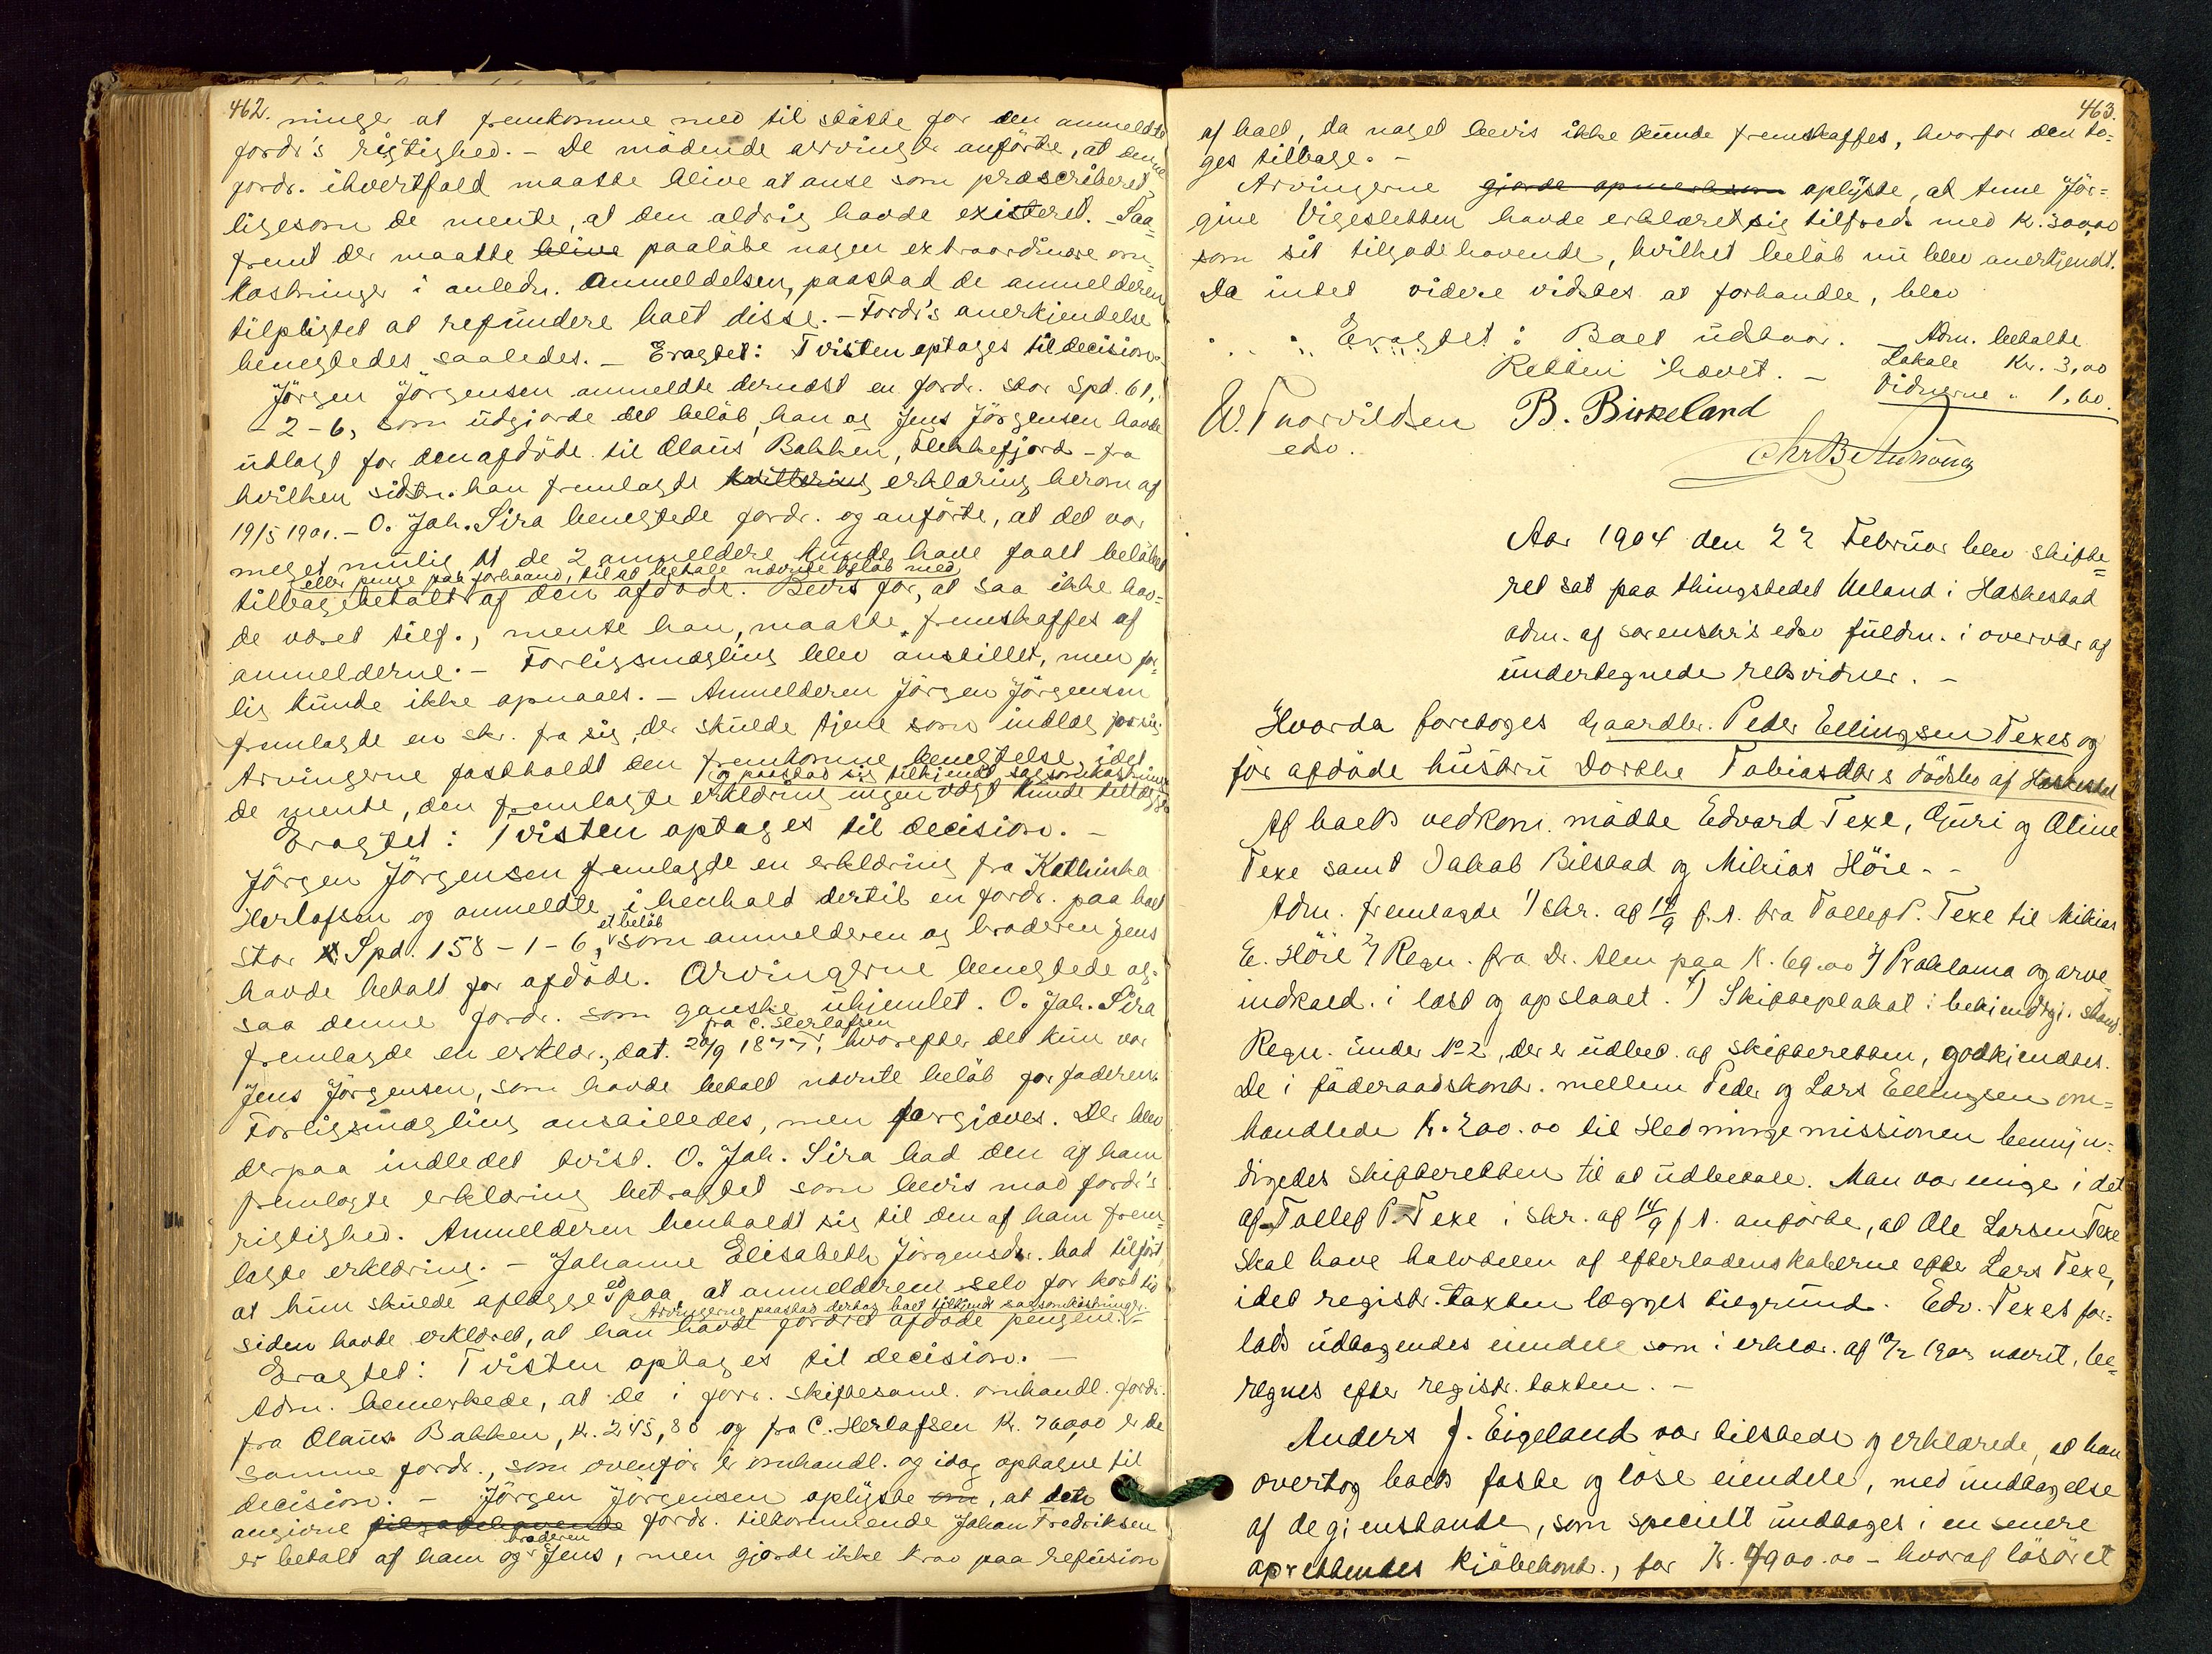 462.
ninger at fremkomme med til stötte for den anmeldte
fordr's rigtighed. - De mödende arvinger anförte, at denne
fordr. ihvertfald maatte blive at anse som præscriberet,
ligesom de mente, at den aldrig havde existeret. - Saa=
fremt der maatte blive paalöbe nogen extraordinære om=
kostninger i anledn. anmeldelsen, paastod de anmelderen
tilpligtet at refundere boet disse. - Fordr's anerkjendelse
benegtedes saaledes. - Eragtet: Tvisten optages til decision.
Jörgen Jörgensen anmeldte dernæst en fordr. stor Spd. 61,
- 2 - 6, som udgjorde det belöb, han og Jens Jörgensen havde
udlagt for den afdöde til Olaus Bakken, Flekkefjord - fra
hvilken sidstn. han fremlagde kvittering erklæring herom af
19/5 1901. - O. Joh. Sira benegtede fordr. og anförte, at det var
meget mulig at de 2 anmeldere kunde have faaet belöbet
eller penge paa forhaand, til at betale nævnte belöb med
tilbagebetalt af den afdöde. Bevis for, at saa ikke hav=
de været tilf., mente han, maatte fremskaffes af
anmelderne. - Forligsmægling blev anstillet, men for=
lig kunde ikke opnaaes. - Anmelderen Jörgen Jörgensen
fremlagde en skr. fra sig, der skulde tjene som indlæg for sig.
Arvingerne fastholdt den fremkomne benegtelse, idet
og paastod sig tilkjendt sagsomkostninger
de mente, den fremlagte erklæring ingen vægt kunde tillægges
Eragtet: Tvisten optages til decision. -
Jörgen Jörgensen fremlagde en erklæring fra Kathinka
Herlofsen og anmeldte i henhold dertil en fordr. paa boet
et belöb
stor Spd. 158 - 1 - 6, som anmelderen og broderen Jens
havde betalt for afdöde. Arvingerne benegtede og=
saa denne fordr. som ganske uhjemlet. O. Joh. Sira
fra C. Herlofsen
fremlagde en erklær., dat. 20/9 1877, hvorefter det kun var
Jens Jörgensen, som havde betalt nævnte belöb for faderen.
Forligsmægling anstilledes, men forgjæves. Der blev
derpaa indledet tvist. O. Joh. Sira bad den af ham
fremlagte erklæring betragtet som bevis mod fordr's
rigtighed. Anmelderen henholdt sig til den af ham frem=
lagte erklæring. - Johanne Elisabeth Jörgensdtr. bad tilfört,
at hun skulde aflægge ed paa, at anmelderen selv for kort tid
Arvingerne paastod derhos boet tilkjendt sagsomkostninger.
siden havde erklæret, at han havde fordret afdöde pengene. -
Eragtet: Tvisten optages til decision. -
Adm. bemerkede, at de i forr. skiftesaml. omhandl. fordr.
fra Olaus Bakken, K. 245,80 og fra C. Herlofsen K. 760,00 er de
samme fordr., som ovenfor er omhandl. og idag optagne til
decision. - Jörgen Jörgensen oplyste om, at den
angivne tilgodehavende fordr. tilkommende Johan Fredriksen
broderen
er betalt af ham og Jens, men gjorde ikke krav paa refusion
463.
af boet, da noget bevis ikke kunde fremskaffes, hvorfor den to=
ges tilbage. -
Arvingerne gjorde opmerksom oplyste, at Anne Jör=
gine Vigesletten havde erklæret sig tilfreds med K. 300,00
som sit tilgodehavende, hvilket belöb nu blev anerkjendt.
Da intet videre vidstes at forhandle, blev
Eragtet: Boet udtaar. - Adm. betalte
Retten hævet. - Lokale Kr. 3,00
Vidnerne " 1,60.
W. Thorvildsen B. Birkeland
edsv.
Aar 1904 den 22 Februar blev skifte=
ret sat paa thingstedet Ueland i Haskestad
adm. af sorenskr's edsv fuldm. i overvær af
undertegnede retsvidner. -
Hvorda foretoges Gaardbr. Peder Ellingsen Texes og
för afdöde hustru Dorthe Tobiasdtr's dödsbo af Haskestad
Af boets vedkom. mödte Edvard Texe, Guri og Oline
Texe samt Jakob Bilstad og Mikias Höie. -
Adm. fremlagde 1) skr. af 14/9 f. A. fra Tollef P. Texe til Mikias
E. Höie 2) Regn. fra Dr. Alm paa K. 69.00 3) Proklama og arve
indkald. i læst og opslaaet. 4) Skifteplakat i bekjendtgj. stand.
Regn. under No 2, der er udbet. af skifteretten, godkjendtes.
De i föderaadskontr. mellem Peder og Lars Ellingsen om=
handlede K. 200.00 til Hedningemissionen bemyn=
digedes skifteretten til at udbetale. Man var enige i det
af Tollef P. Texe i skr. af 14/9 f A. anförte, at Ole Larsen Texe
skal have halvdelen af efterladenskaberne efter Lars Texe,
idet registr. taxten lægges tilgrund. Edv. Texes for=
lods udtagendes eiendele som i erklær. af 10/2 1903 nævnt, be=
regnes efter registr. taxten. -
Anders J. Eigeland var tilstede og erklærede, at han
overtog boets faste og löse eiendele, med undtagelse
af de gjenstande, som specielt undtages i en senere
oprettendes kjöbekontr., for K. 4900.00 - hvoraf lösöret